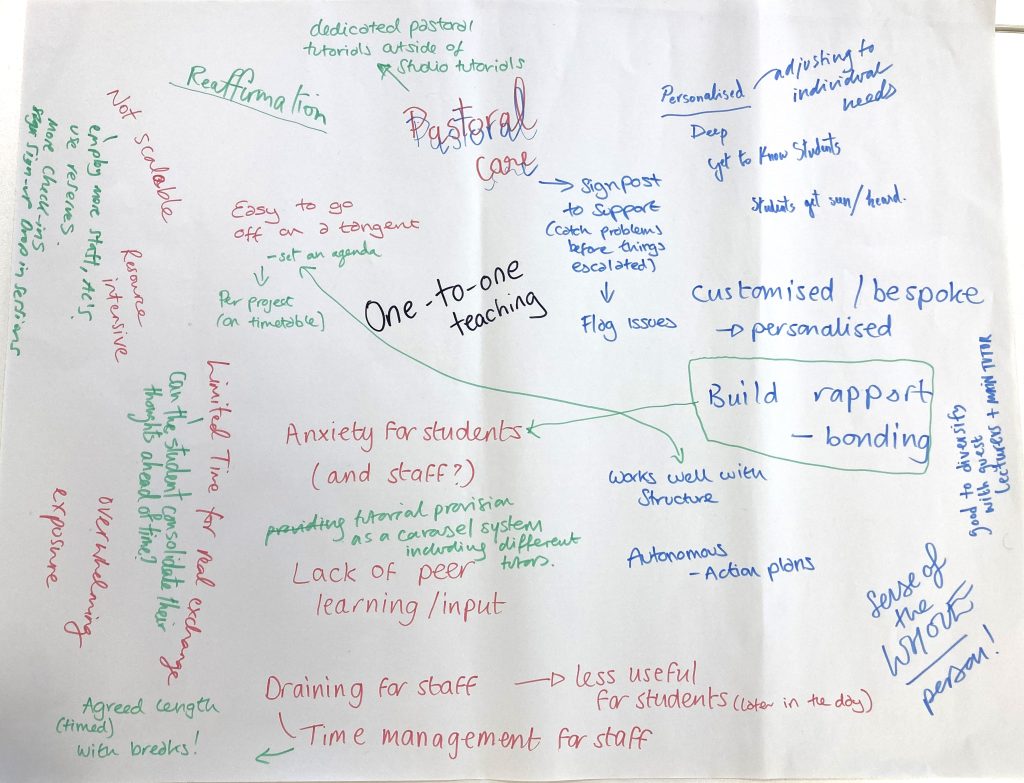 dedicated pastoral
tutorials outside of
studio tutorials
Reaffirmation
Pastoral
care
Personalised
adjusting to
individual
needs
Deep
get to Know Students
Students get seen/heard.
Not scalable
employ more staff, AL's
use reserves.
more check-ins
Sign-up Drop in sessions
Easy to go
off on a tangent
- set an agenda
Per project
(on timetable)
Signpost
to support
(catch problems
before things
escalated)
Flag issues
One-to-one
teaching
Resource
intensive
Customised / bespoke
personalised
Build rapport
- bonding
good to diversify
with guest
lecturers + MAIN TUTOR
Limited Time for real exchange
Can the student consolidate their
thoughts ahead of time?
overwhelming
exposure
Anxiety for students
(and staff?)
providing tutorial provision
as a carousel system
including different
tutors.
Lack of peer
learning/input
Works well with
Structure
Autonomous
- Action plans
Sense of
the
WHOLE
person!
Draining for staff
less useful
for students (later in the day)
Time management for staff
Agreed length
(timed)
with breaks!